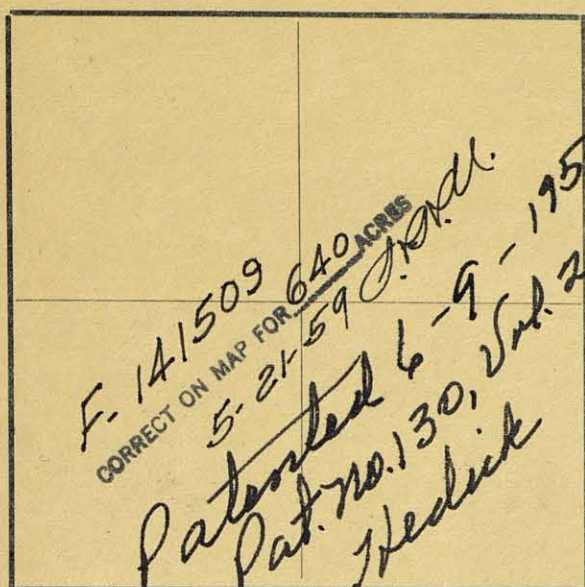 F- 141509
CORRECT ON MAP FOR 640 ACRES
5-21-59
Patented 6-9-195
Pat. No. 130, Vol. 2
Hedick